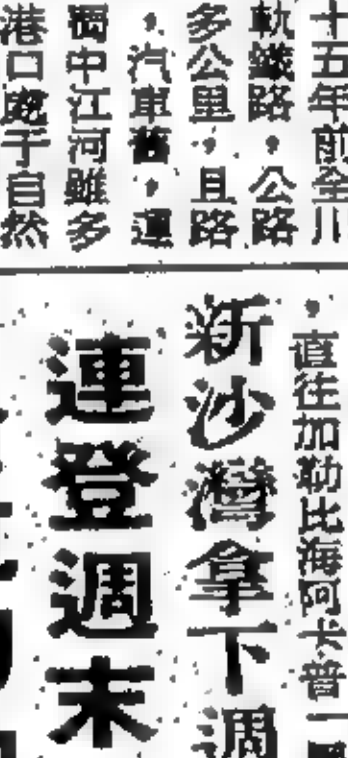 十五年前全川
軌鐵路，公路
多公里，且路
，汽車舊，運
蜀中江河雖多
港口處于自然
，直往加勒比海阿卡普一
新沙灣拿下週
連登週末